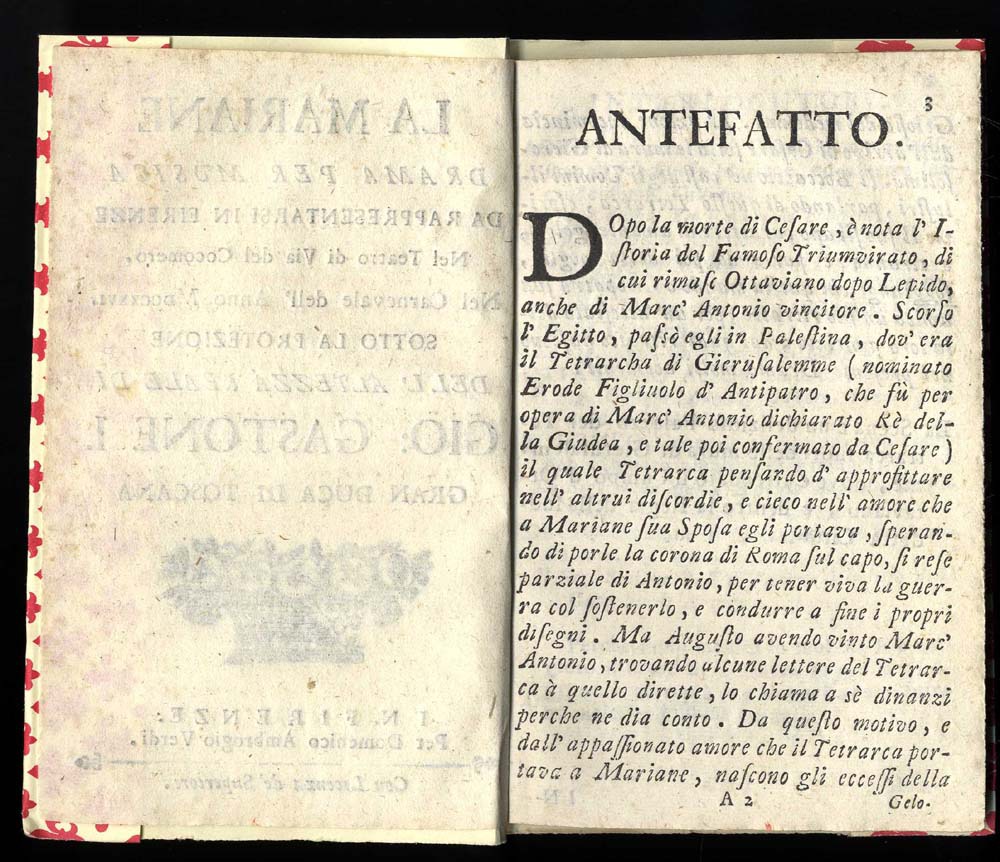 LA MARIANE
DRAMA PER MUSICA
DA RAPPRESENTARSI IN FIRENZE
Nel Teatro di Via del Cocomero,
Nel Carnevale dell' Anno
SOTTO LA PROTEZIONE
DELL' ALTEZZA REALE DI
GIO: GASTONE I.
GRAN DUCA DI TOSCANA
IN FIRENZE:
Per Domenico Ambrogio Verdi.
Con Licenza de' Superiori.
3
ANTEFATTO.
DOpo la morte di Ceſare, è nota l' I-
ſtoria del Famoſo Triumvirato, di
cui rimaſe Ottaviano dopo Lepido,
anche di Marc' Antonio vincitore. Scorſo
l' Egitto, paſsò egli in Paleſtina, dov' era
il Tetrarcha di Gieruſalemme (nominato
Erode Figliuolo d' Antipatro, che fù per
opera di Marc' Antonio dichiarato Rè del-
la Giudea, e tale poi confermato da Ceſare)
il quale Tetrarca penſando d' approfittare
nell' altrui diſcordie, e cieco nell' amore che
a Mariane ſua Spoſa egli portava, ſperan-
do di porle la corona di Roma ſul capo, ſi reſe
parziale di Antonio, per tener viva la guer-
ra col ſoſtenerlo, e condurre a fine i propri
diſegni. Ma Auguſto avendo vinto Marc'
Antonio, trovando alcune lettere del Tetrar-
ca à quello dirette, lo chiama a sè dinanzi
perche ne dia conto. Da queſto motivo, e
dall' appaſſionato amore che il Tetrarca por-
tava a Mariane, naſcono gli ecceſſi della
A 2 Gelo-